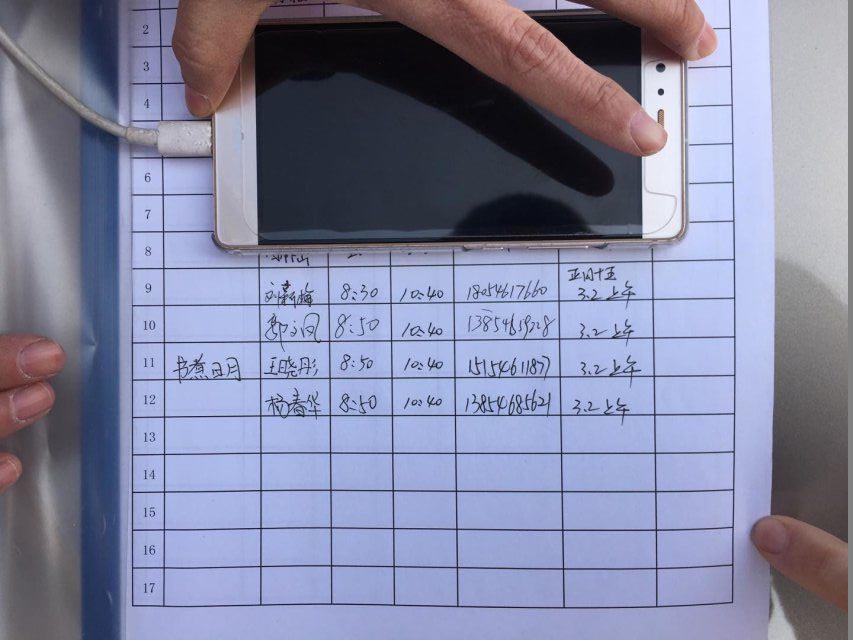 2
3
4
6
7
8
9 刘新梅 8:30 10:40 18054617660 正月十五 3.2上午
10 郭文凤 8:50 10:40 13854659228 3.2上午
11 书煮日月 王晓彤 8:50 10:40 15154611877 3.2上午
12 杨春华 8:50 10:40 13854685621 3.2上午
13
14
15
16
17